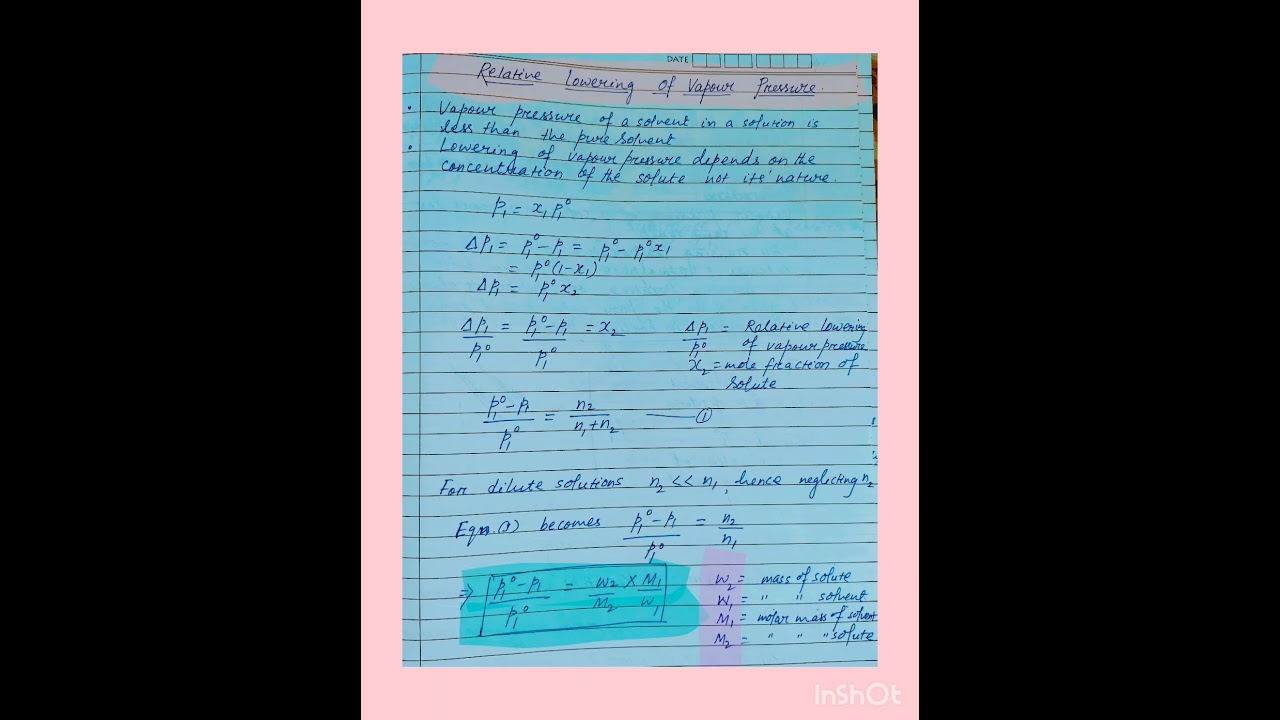 DATE
Relative Lowering of Vapour Pressure.
• Vapour pressure of a solvent in a solution is
less than the pure solvent
• Lowering of vapour pressure depends on the
concentration of the solute not its nature.
p₁ = x₁p₁⁰
Δp₁ = p₁⁰ - p₁ = p₁⁰ - p₁⁰x₁
= p₁⁰(1-x₁)
Δp₁ = p₁⁰x₂
Δp₁/p₁⁰ = (p₁⁰-p₁)/p₁⁰ = x₂
Δp₁/p₁⁰ = Relative lowering
of vapour pressure
x₂ = mole fraction of
solute
(p₁⁰-p₁)/p₁⁰ = n₂/(n₁+n₂) —— ①
For dilute solutions n₂ << n₁, hence neglecting n₂
Eqn. (1) becomes (p₁⁰-p₁)/p₁⁰ = n₂/n₁
⇒ (p₁⁰-p₁)/p₁⁰ = w₂/M₂ × M₁/w₁
w₂ = mass of solute
w₁ = " " solvent
M₁ = molar mass of solvent
M₂ = " " " solute
InShOt